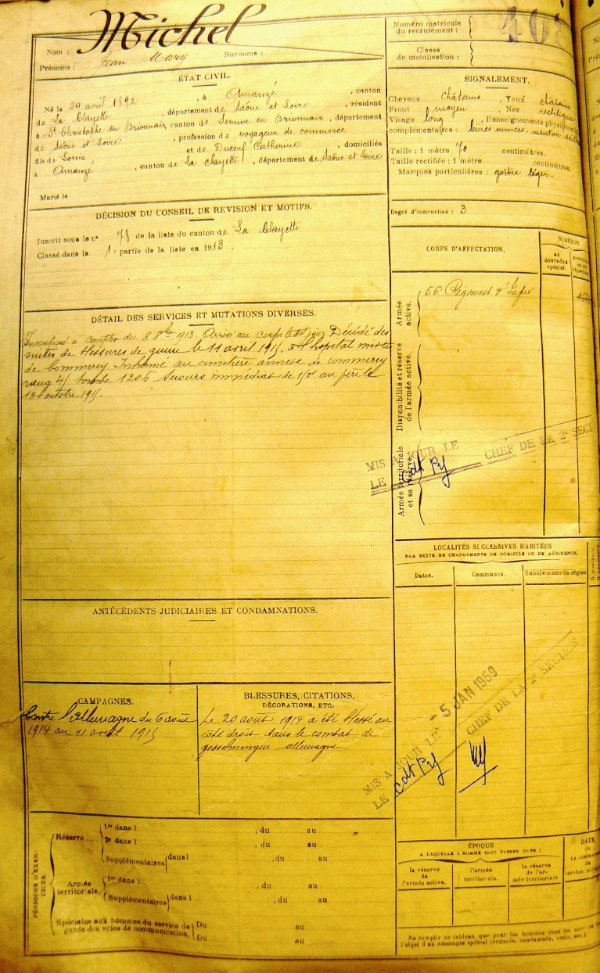 Michel
Nom :
Prénoms : Jean Mary Surnoms :
ÉTAT CIVIL.
Né le 24 avril 1892, à Amanzé, canton
de La Clayette, département de Saône et Loire, résident
à St Christophe en Brionnais canton de Semur en Brionnais, département
de Saône et Loire, profession de voyageur de commerce
fils de Louis, et de Ducerf Catherine, domiciliés
à Amanzé, canton de La Clayette, département de Saône et Loire
Marié le
DÉCISION DU CONSEIL DE REVISION ET MOTIFS.
Inscrit sous le n° 45 de la liste du canton de La Clayette
Classé dans la 1e partie de la liste en 1913.
DÉTAIL DES SERVICES ET MUTATIONS DIVERSES.
Incorporé à compter du 8 8bre 1913. Arrivé au corps le dit jour Décédé des
suites de blessures de guerre le 11 avril 1915. hôpital mixte
de Commercy Inhumé au cimetière annexe de Commercy
rang tombe 1206 Secours immédiat de 150f au père le
18 octobre 1915.
ANTÉCÉDENTS JUDICIAIRES ET CONDAMNATIONS.
CAMPAGNES.
Contre l'allemagne du 6 août
1914 au 11 avril 1915
BLESSURES, CITATIONS,
DÉCORATIONS, ETC.
Le 20 août 1914 a été blessé au
côté droit dans le combat de
allemagne
PÉRIODES D'EXERCICES.
Réserve ....
1re dans l , du au
2e dans l , du au
Supplémentaires dans l , du au
Armée territoriale.
1re dans l , du au
Supplémentaires dans l , du au
Spéciales aux hommes du service de garde des voies de communication. Du au
Du au
Numéro matricule
du recrutement :
Classe
de mobilisation :
SIGNALEMENT.
Cheveux châtains, Yeux
Front moyen, Nez rectiligne
Visage long, Renseignements physiognomiques
complémentaires :
Taille : 1 mètre 70 centimètres.
Taille rectifiée : 1 mètre centimètres.
Marques particulières : goitre léger.
Degré d'instruction : 3
CORPS D'AFFECTATION.
Armée active.
56e Régiment d'Infrie
Disponibilité et réserve de l'armée active.
Armée territoriale et sa réserve.
MIS A JOUR LE
LE CHEF DE LA 2e SECT
LOCALITÉS SUCCESSIVES HABITÉES
PAR SUITE DE CHANGEMENTS DE DOMICILE OU DE RÉSIDENCE.
Dates. Communes. Subdivisions de région
MIS A JOUR LE -5 JAN 1959
LE CHEF DE LA 2e SECTION
ÉPOQUE
A LAQUELLE L'HOMME DOIT PASSER DANS :
la réserve de l'armée active.
l'armée territoriale.
la réserve de l'armée territoriale
DATE
Ne remplir ce tableau que pour les hommes dont les
l'objet d'un décompte spécial (engagés, condamnés, omis, etc.)